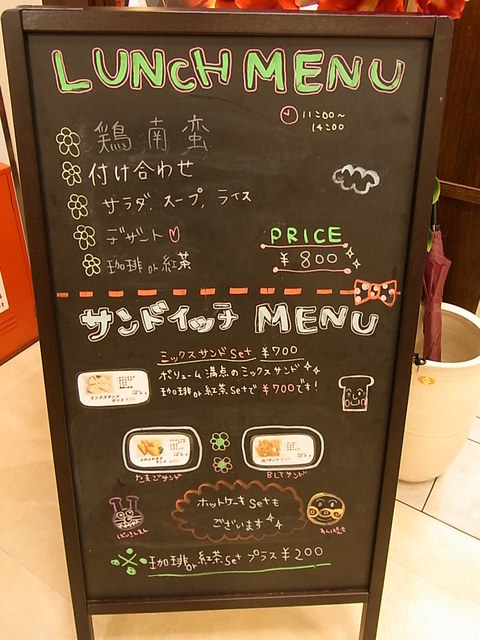 LUNCH MENU
11:00~
14:00
鶏南蛮
付け合わせ
サラダ、スープ、ライス
デザート
珈琲or紅茶
PRICE
¥800
サンドイッチ MENU
ミックスサンドSet ¥700
ボリューム満点のミックスサンド
珈琲or紅茶Setで¥700です!
たまごサンド
BLTサンド
ホットケーキSetも
ございます
珈琲or紅茶Set プラス¥200